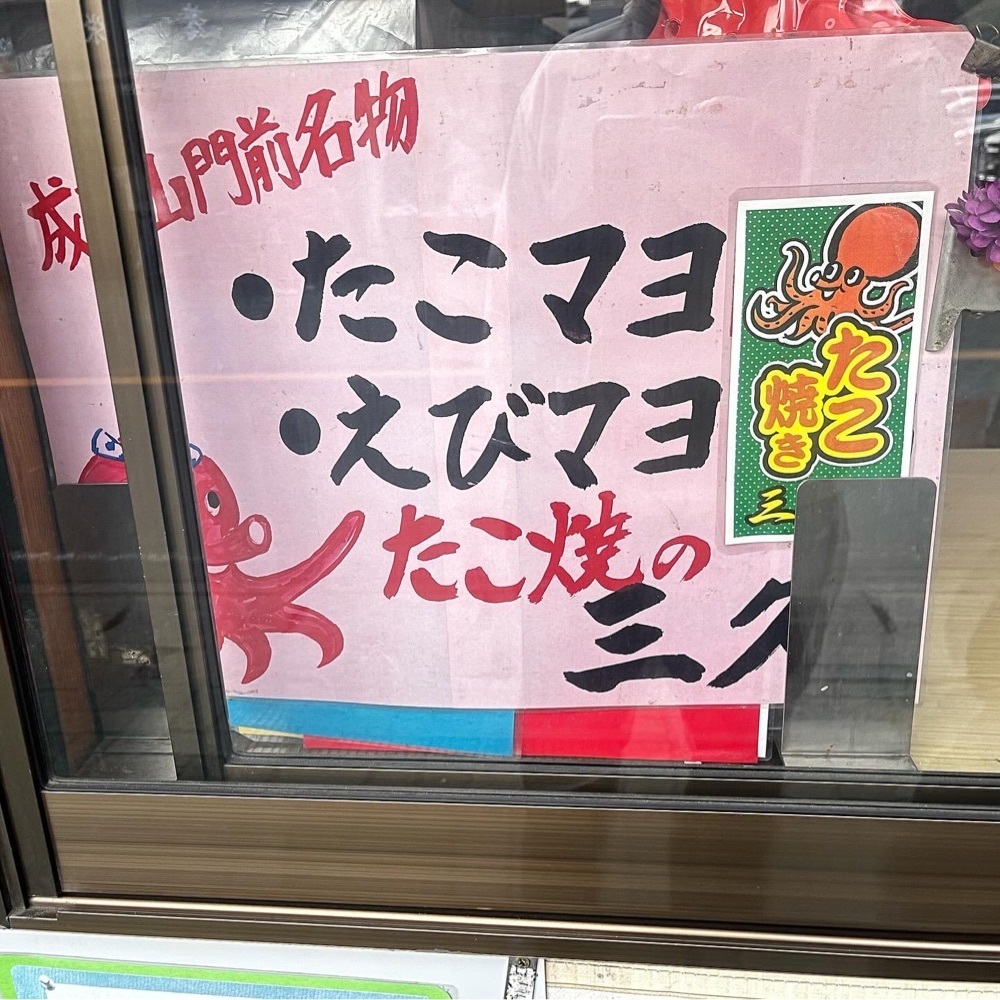 成 山門前名物
・たこマヨ
・えびマヨ
たこ焼の
三久
たこ
焼き
三